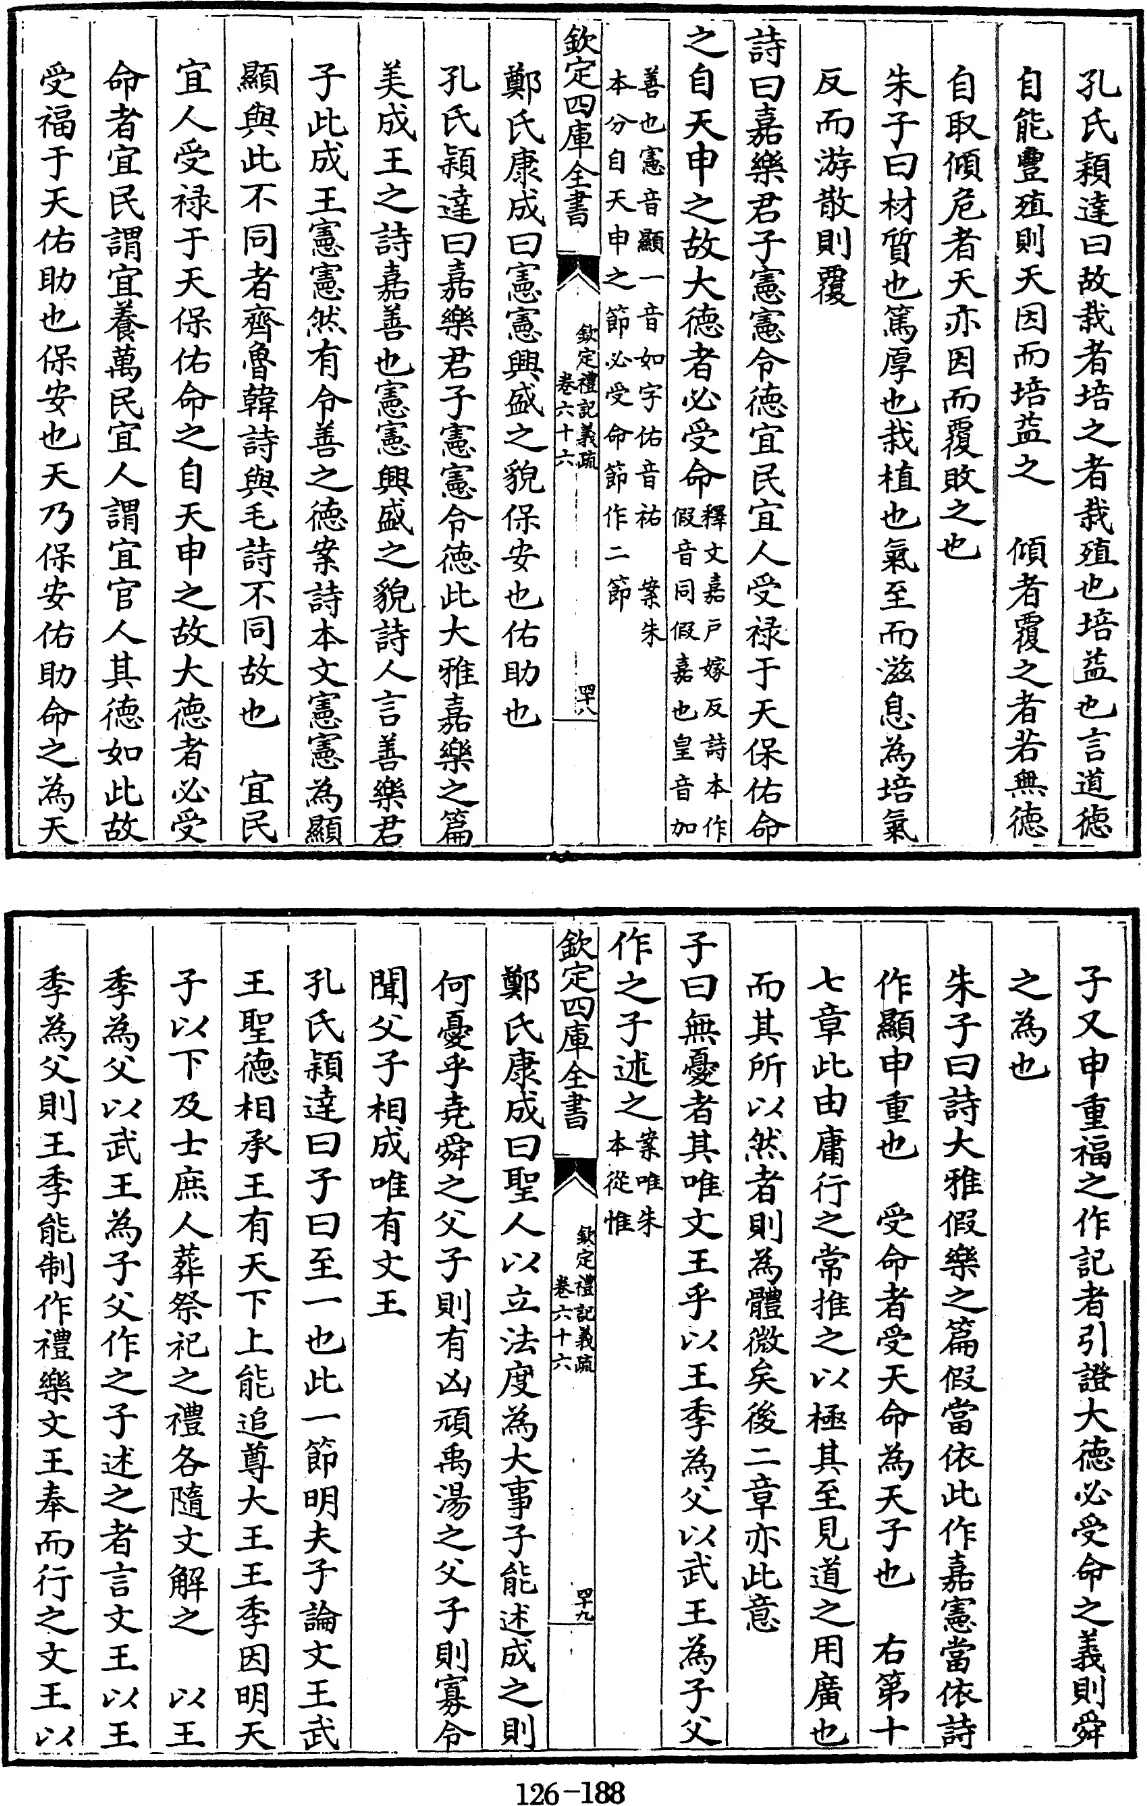 孔氏穎達曰故栽者培之者栽殖也培益也言道德
自能豐殖則天因而培益之　傾者覆之者若無德
自取傾危者天亦因而覆敗之也
朱子曰材質也篤厚也栽植也氣至而滋息為培氣
反而游散則覆
詩曰嘉樂君子憲憲令德宜民宜人受祿于天保佑命
之自天申之故大德者必受命
釋文嘉戸嫁反詩本作
假音同假嘉也皇音加
善也憲音顯一音如字佑音祐　案朱
本分自天申之節必受命節作二節
欽定四庫全書
欽定禮記義疏
卷六十六
四十八
鄭氏康成曰憲憲興盛之貌保安也佑助也
孔氏穎達曰嘉樂君子憲憲令德此大雅嘉樂之篇
美成王之詩嘉善也憲憲興盛之貌詩人言善樂君
子此成王憲憲然有令善之德案詩本文憲憲為顯
顯與此不同者齊魯韓詩與毛詩不同故也　宜民
宜人受祿于天保佑命之自天申之故大德者必受
命者宜民謂宜養萬民宜人謂宜官人其德如此故
受福于天佑助也保安也天乃保安佑助命之為天
子又申重福之作記者引證大德必受命之義則舜
之為也
朱子曰詩大雅假樂之篇假當依此作嘉憲當依詩
作顯申重也　受命者受天命為天子也　右第十
七章此由庸行之常推之以極其至見道之用廣也
而其所以然者則為體微矣後二章亦此意
子曰無憂者其唯文王乎以王季為父以武王為子父
作之子述之
案唯朱
本從惟
欽定四庫全書
欽定禮記義疏
卷六十六
四十九
鄭氏康成曰聖人以立法度為大事子能述成之則
何憂乎堯舜之父子則有凶頑禹湯之父子則寡令
聞父子相成唯有文王
孔氏穎達曰子曰至一也此一節明夫子論文王武
王聖德相承王有天下上能追尊大王王季因明天
子以下及士庶人葬祭祀之禮各隨文解之　以王
季為父以武王為子父作之子述之者言文王以王
季為父則王季能制作禮樂文王奉而行之文王以
126-188